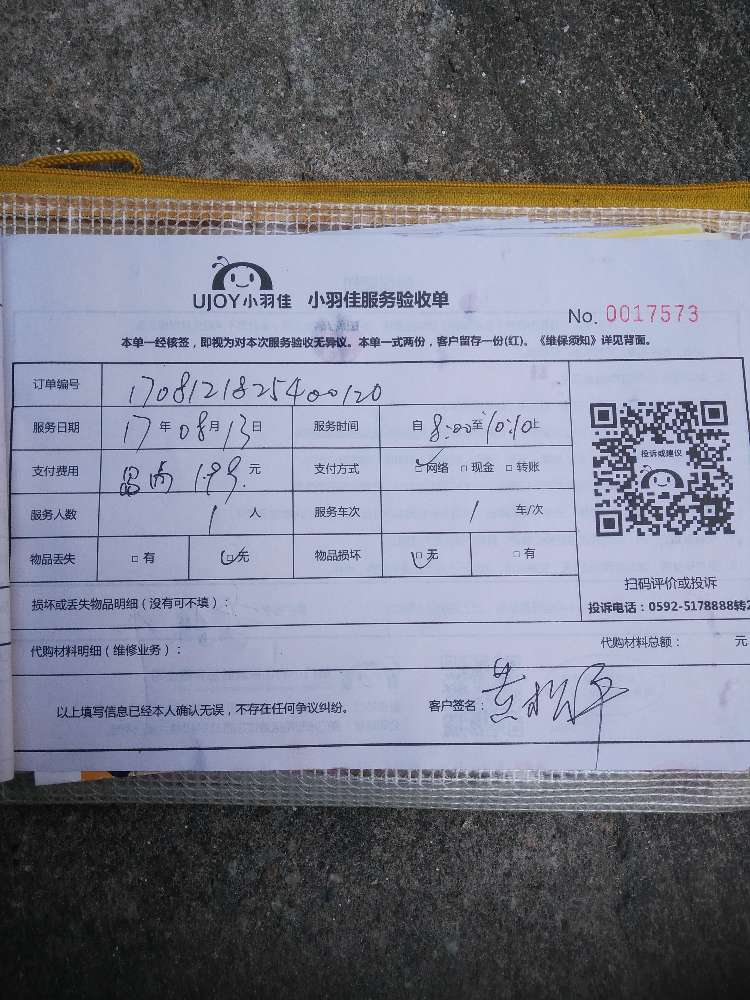 UJOY小羽佳 小羽佳服务验收单
No. 0017573
本单一经核签，即视为对本次服务验收无异议。本单一式两份，客户留存一份(红)。《维保须知》详见背面。
订单编号 1708121825400120
服务日期 17年08月13日 服务时间 自8:00至10:10止
支付费用 199元 支付方式 □网络 □现金 □转账
服务人数 1人 服务车次 1车/次
物品丢失 □有 □无 物品损坏 □无 □有
投诉或建议
扫码评价或投诉
投诉电话：0592-5178888转2
损坏或丢失物品明细（没有可不填）：
代购材料明细（维修业务）： 代购材料总额： 元
以上填写信息已经本人确认无误，不存在任何争议纠纷。 客户签名：黄